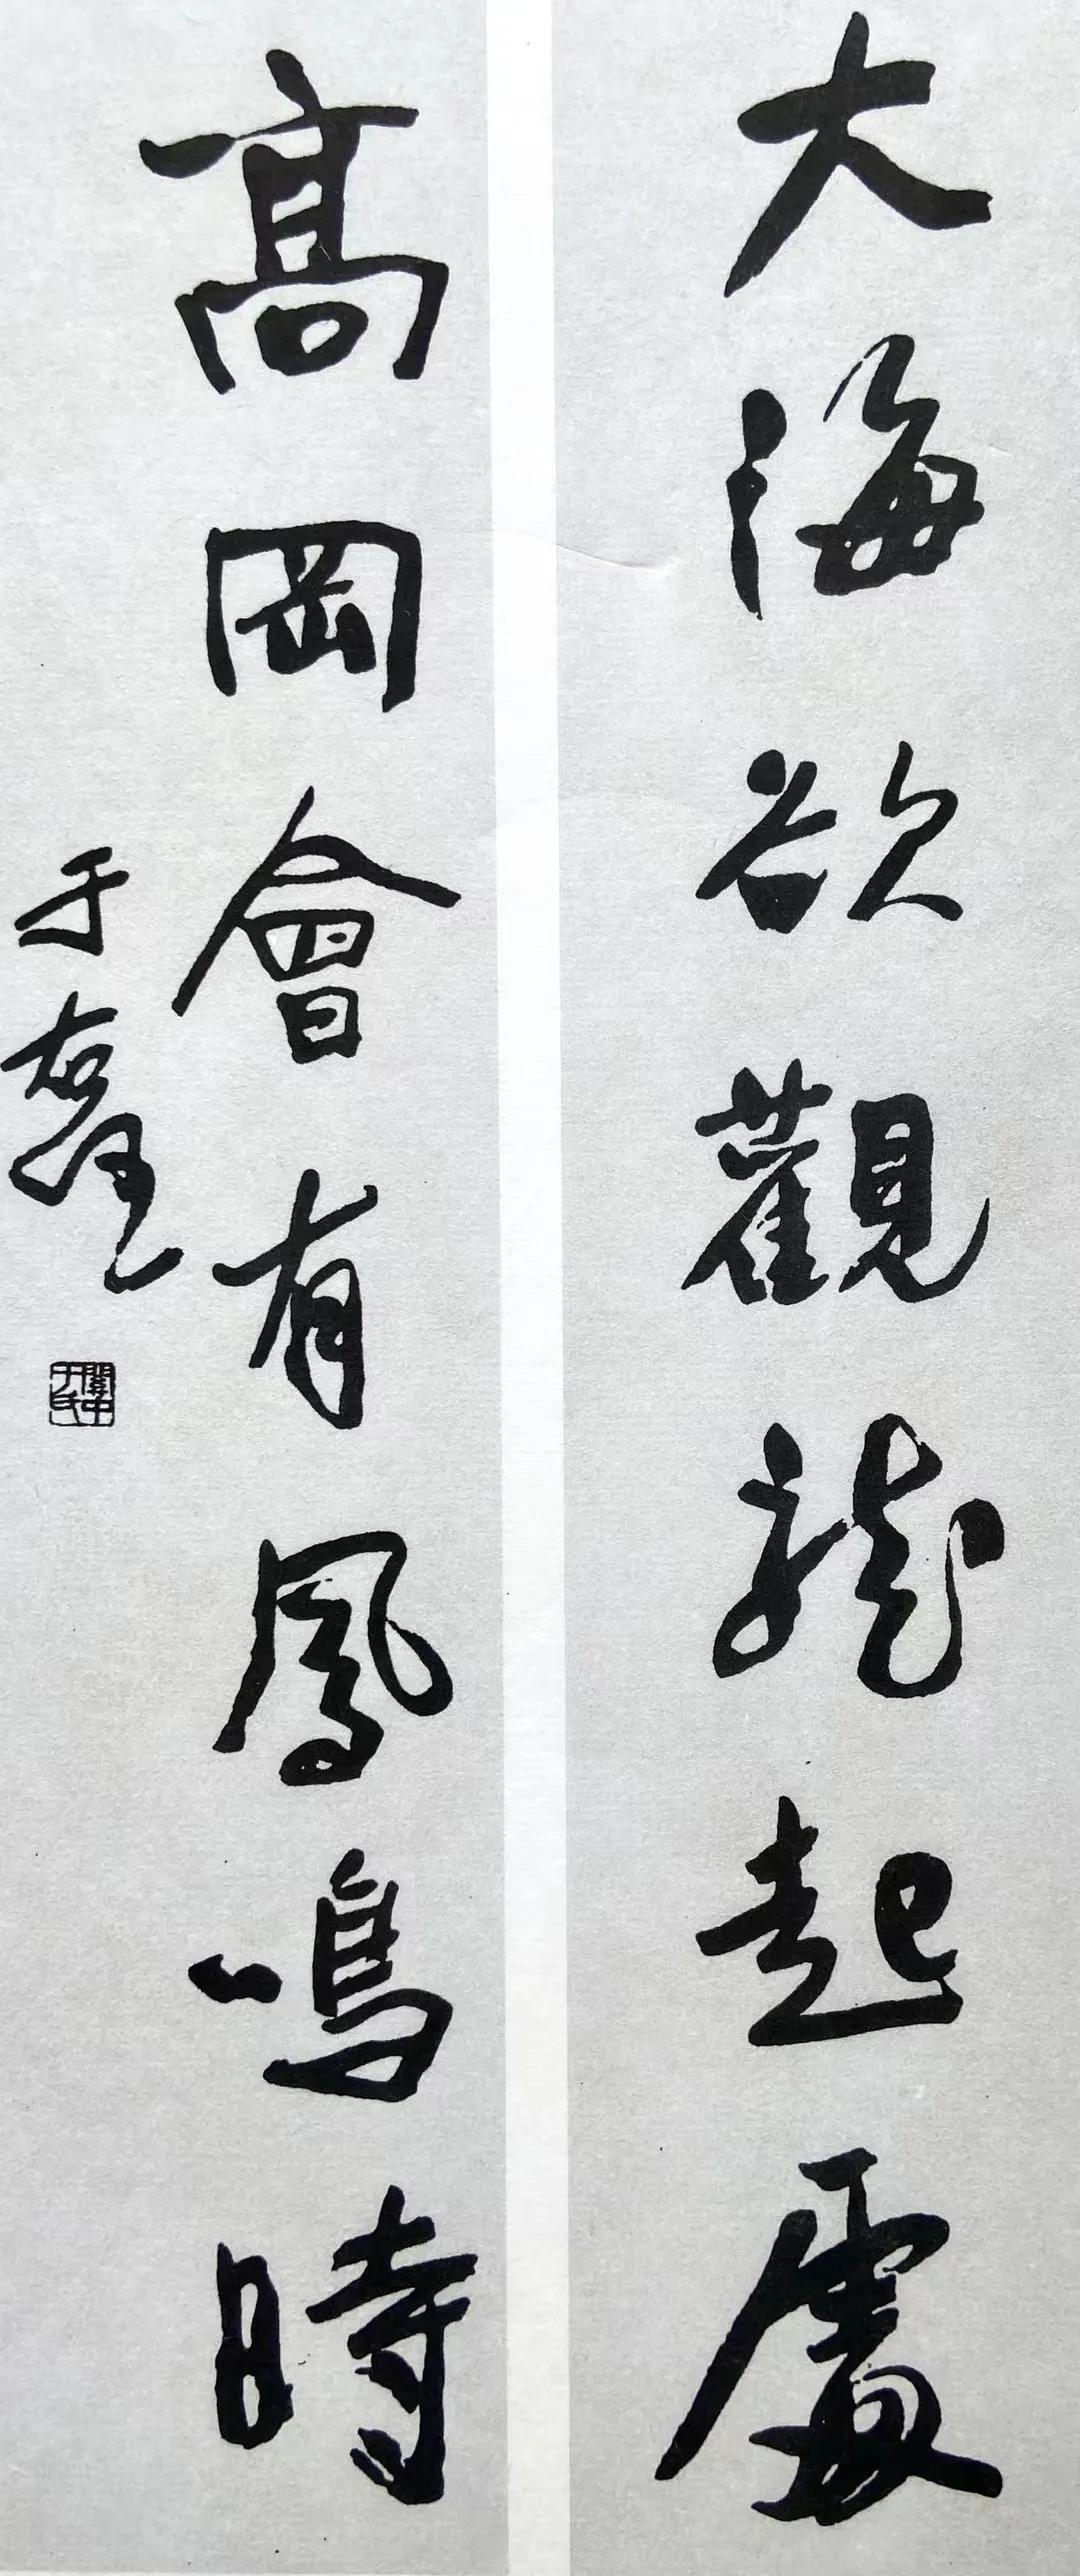 大海欲觀龍起處
高岡會有鳳鳴時
于右任
關中于氏